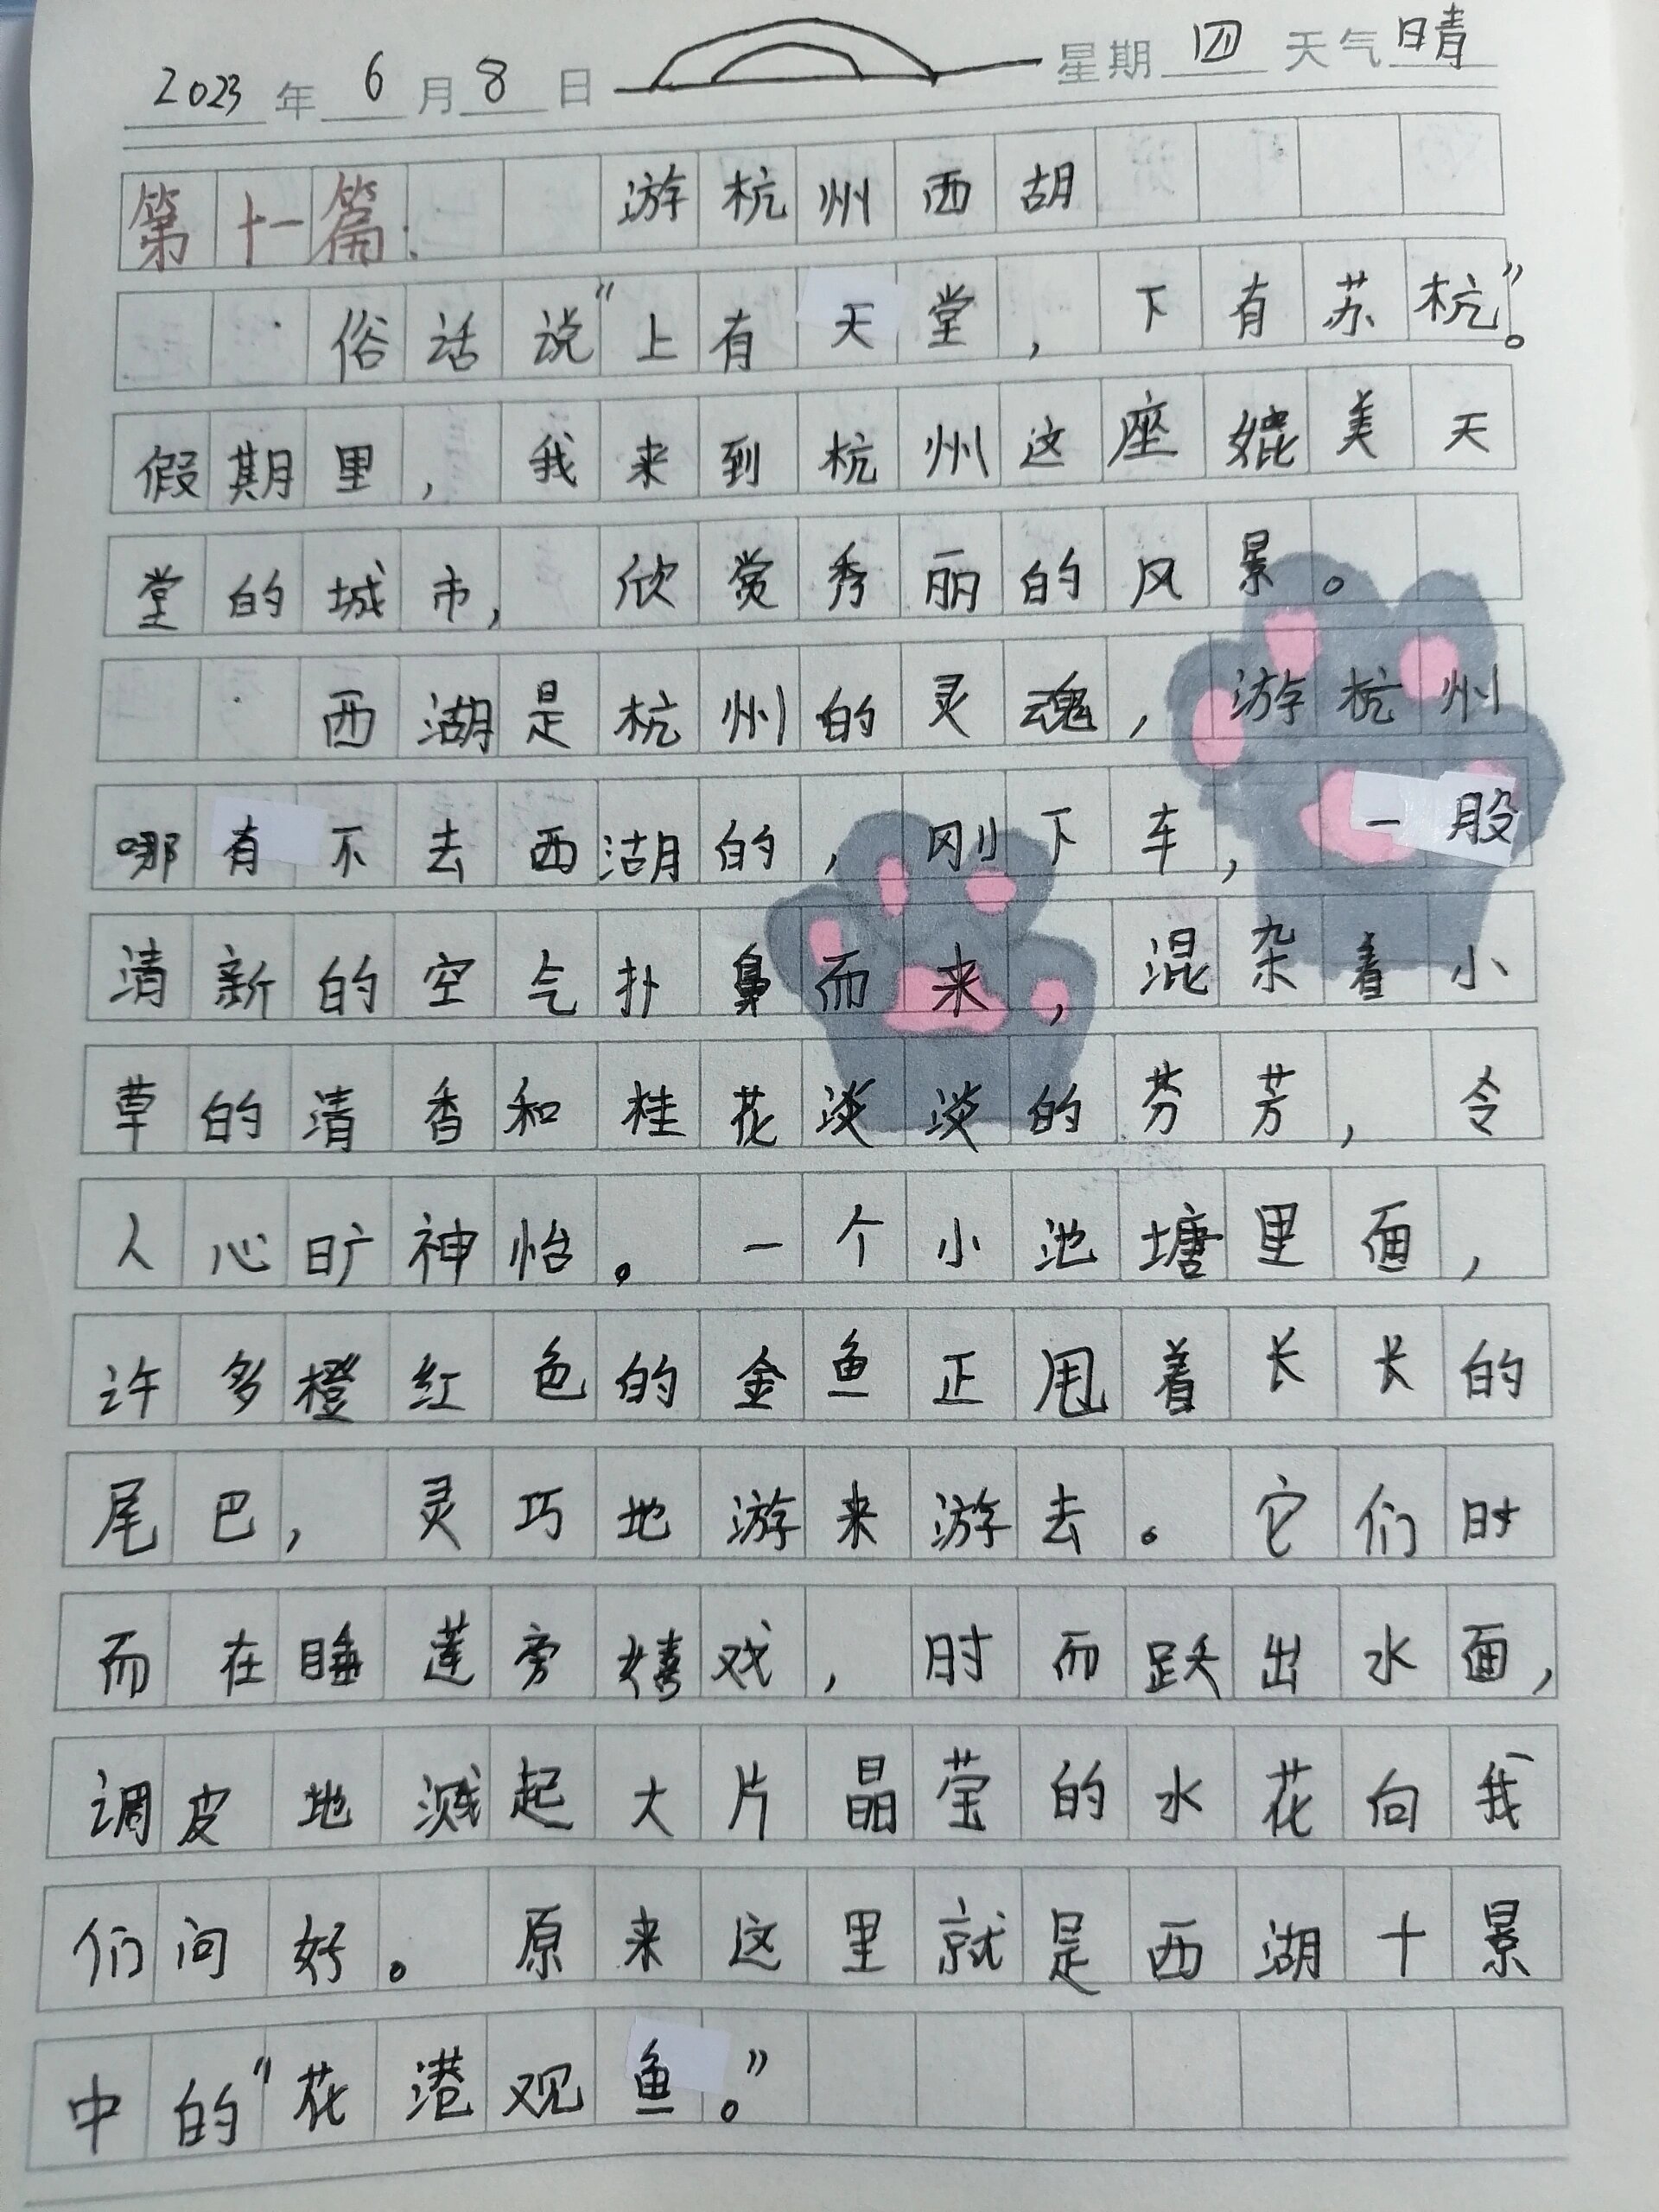 2023年6月8日 星期四 天气晴
第十一篇. 游杭州西胡
俗话说"上有天堂，下有苏杭"。
假期里，我来到杭州这座媲美天
堂的城市，欣赏秀丽的风景。
西湖是杭州的灵魂，游杭州
哪有不去西湖的，刚下车，一股
清新的空气扑鼻而来，混杂着小
草的清香和桂花淡淡的芬芳，令
人心旷神怡。一个小池塘里面，
许多橙红色的金鱼正甩着长长的
尾巴，灵巧地游来游去。它们时
而在睡莲旁嬉戏，时而跃出水面，
调皮地溅起大片晶莹的水花向我
们问好。原来这里就是西湖十景
中的"花港观鱼。"